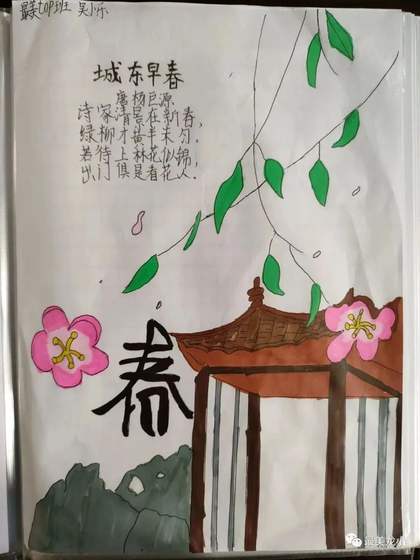 最美top班 吴小乐
城东早春
唐杨巨源
诗家清景在新春，
绿柳才黄半未匀。
若待上林花似锦，
出门俱是看花人。
春
最美龙小